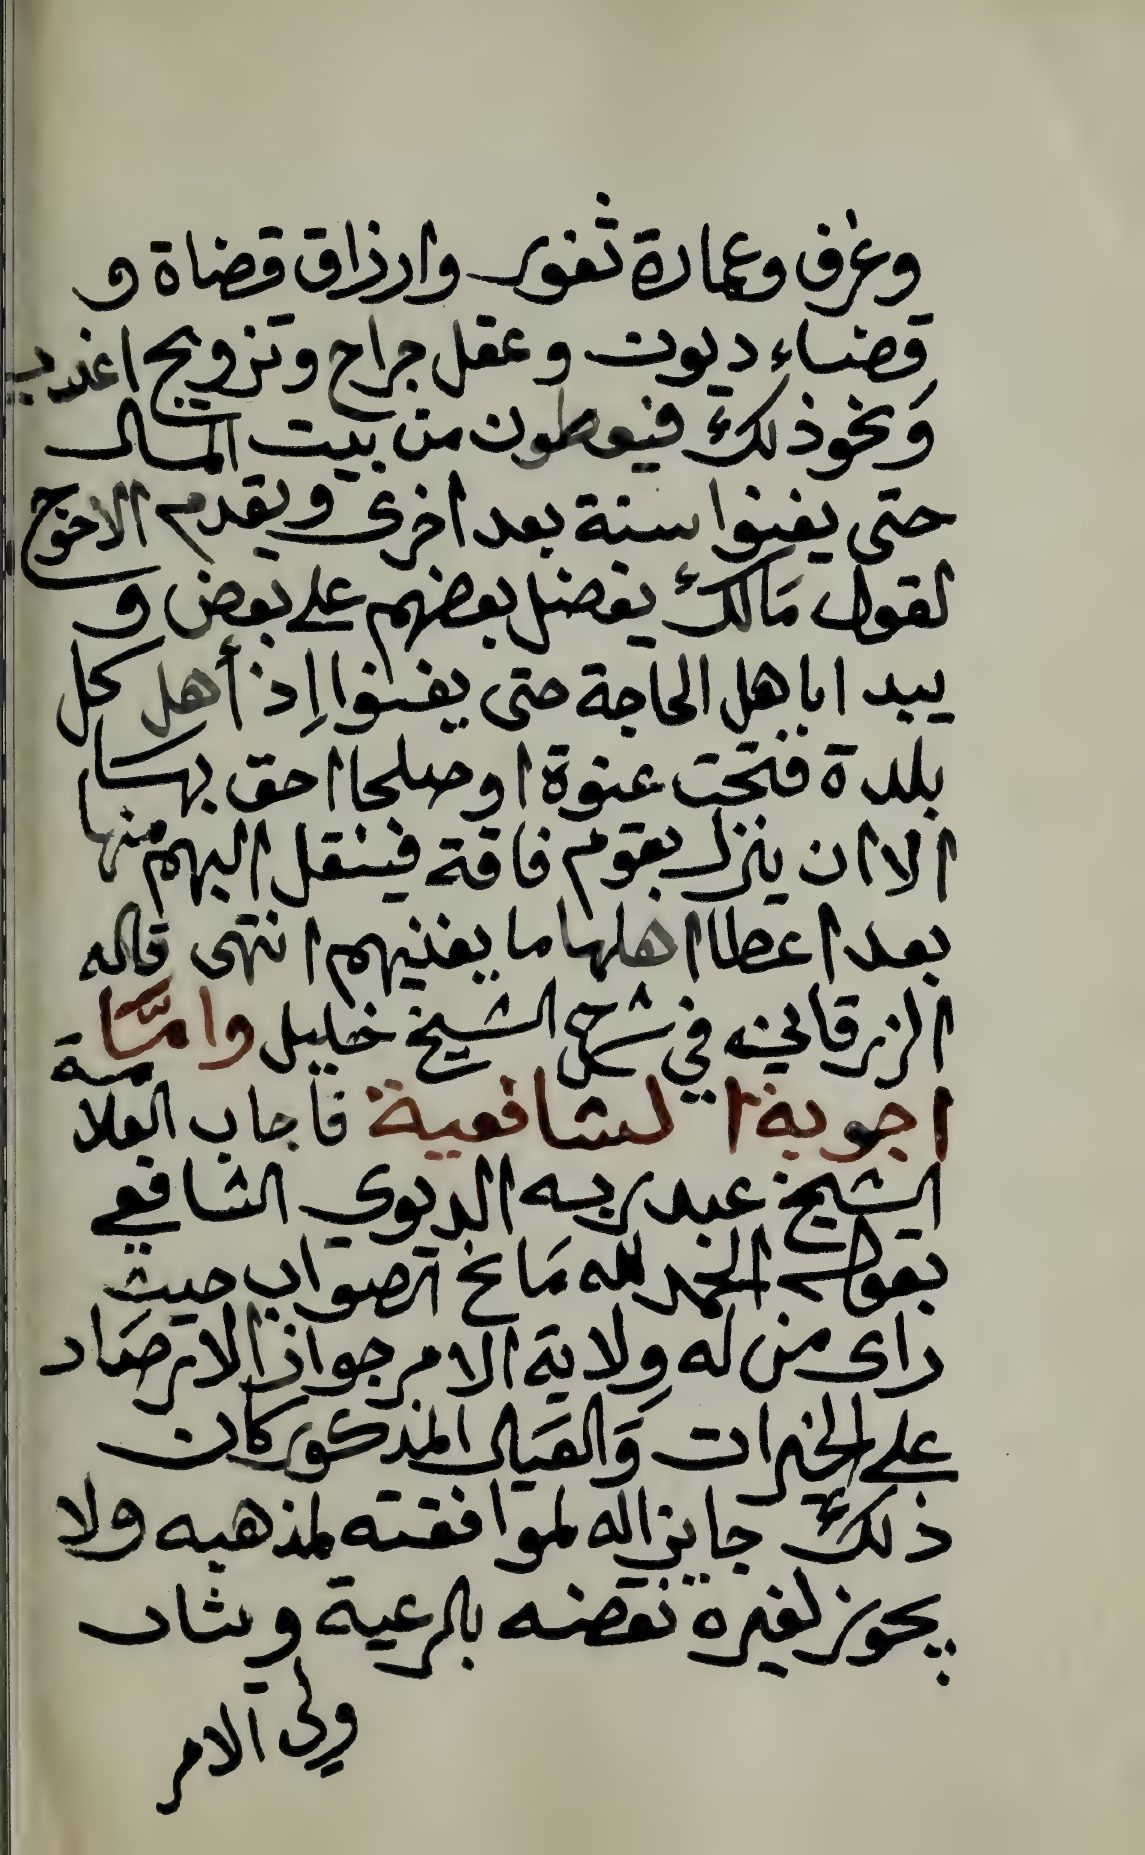 وغزو وعمارة ثغور وارزاق قضاة و
قضاء ديون وعقل جراح وتزويج اعزب
ونحو ذلك فيعطون من بيت المال
حتى يغنوا سنة بعد اخرى ويقدم الاحوج
لقول مالك يفضل بعضهم على بعض و
يبدا باهل الحاجة حتى يغنوا إذ أهل كل
بلدة فتحت عنوة او صلحا احق بها
الا ان ينزل بقوم فاقة فينقل اليهم منها
بعد اعطا اهلها ما يغنيهم انتهى قاله
الزرقاني في شرح الشيخ خليل وامّا
اجوبة الشافعية فاجاب العلامة
الشيخ عبد ربه الديوي الشافعي
بقوله الحمد لله مَانح الصواب حيث
راى من له ولاية الامر جواز الارصاد
على الخيرات وَالعيال المذكور كان
ذلك جايزا له لموافقته لمذهبه ولا
يجوز لغيره نقضه بالرعية ويثاب
ولى الامر